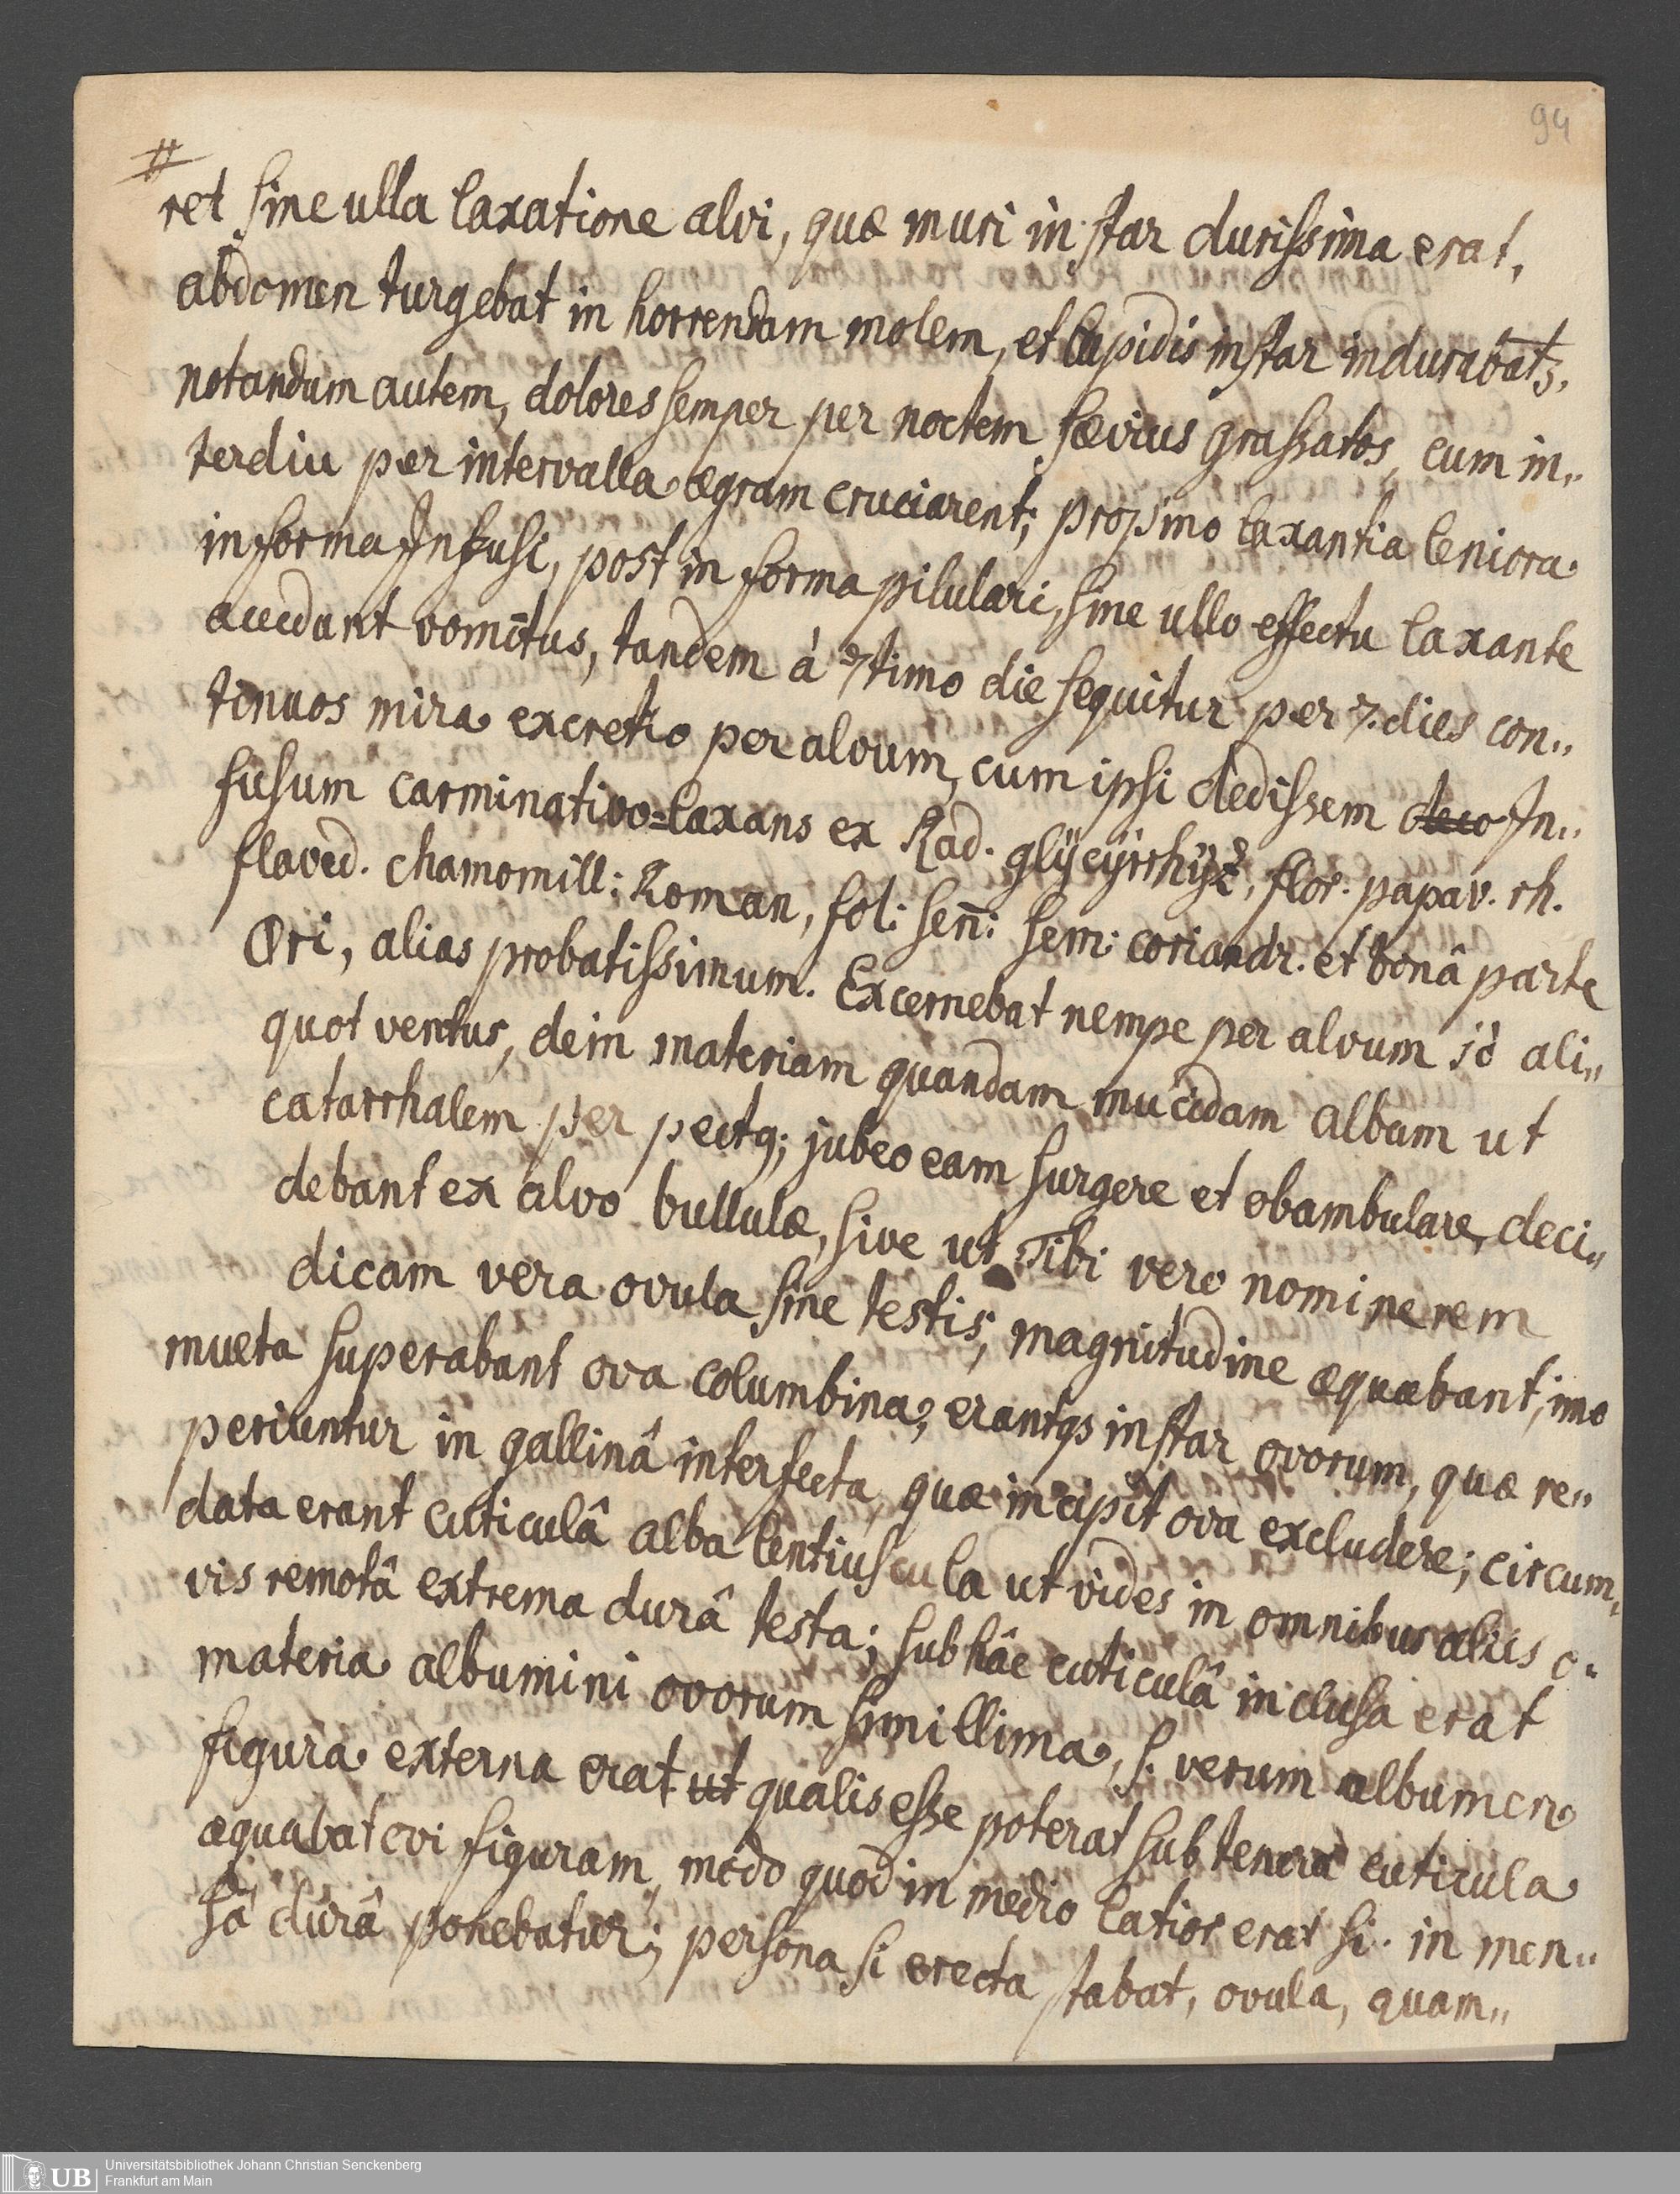 94
#
ret sine ulla laxatione alvi, quæ muri instar durissima erat,
abdomen turgebat in horrendam molem, et lapidis instar indurabatz,
notandum autem, dolores semper per noctem sævius grassatos, cum in„
terdiu per intervalla ægram cruciarent; propino laxantia leniora
in forma Infusi, post in forma pilulari, sine ullo effectu laxante
accedunt vomitus, tandem à 7timo die sequitur per 7. dies con„
tinuos mira excretio per alvum, cum ipsi dedissem deco In„
fusum carminativo=laxans ex Rad. glÿcÿrrhÿz, flor. papav. rh.
flaved. chamomill: Roman, fol: señ: sem: coriandr. et bonâ parte
Ori, alias probatissimum. Excernebat nempe per alvum 1ò ali„
quot ventus, dein materiam quandam mucidam albam ut
catarrhalem per pectq; jubeo eam surgere et obambulare, deci„
debant ex alvo bullulæ, sive ut Tibi vero nomine rem
dicam vera ovula sine testis; magnitudine æquabant, imo
multa superabant ova columbina; erantqs instar ovorum, quæ re„
periuntur in gallinâ interfecta, quæ incipit ova excludere; circum„
data erant cuticulâ alba lentiuscula ut vides in omnibus aliis o„
vis remotâ extrema durâ testa; sub hâc cuticulâ inclusa erat
materia albumini ovorum simillima, s. verum albumen
figura externa erat ut qualis esse poterat sub tenera cuticula
æquabat ovi figuram, modo quod in medio latior erat si. in men„
sâ durâ ponebatur; persona si erecta stabat, ovula, quam„
UB
Universitätsbibliothek Johann Christian Senckenberg
Frankfurt am Main